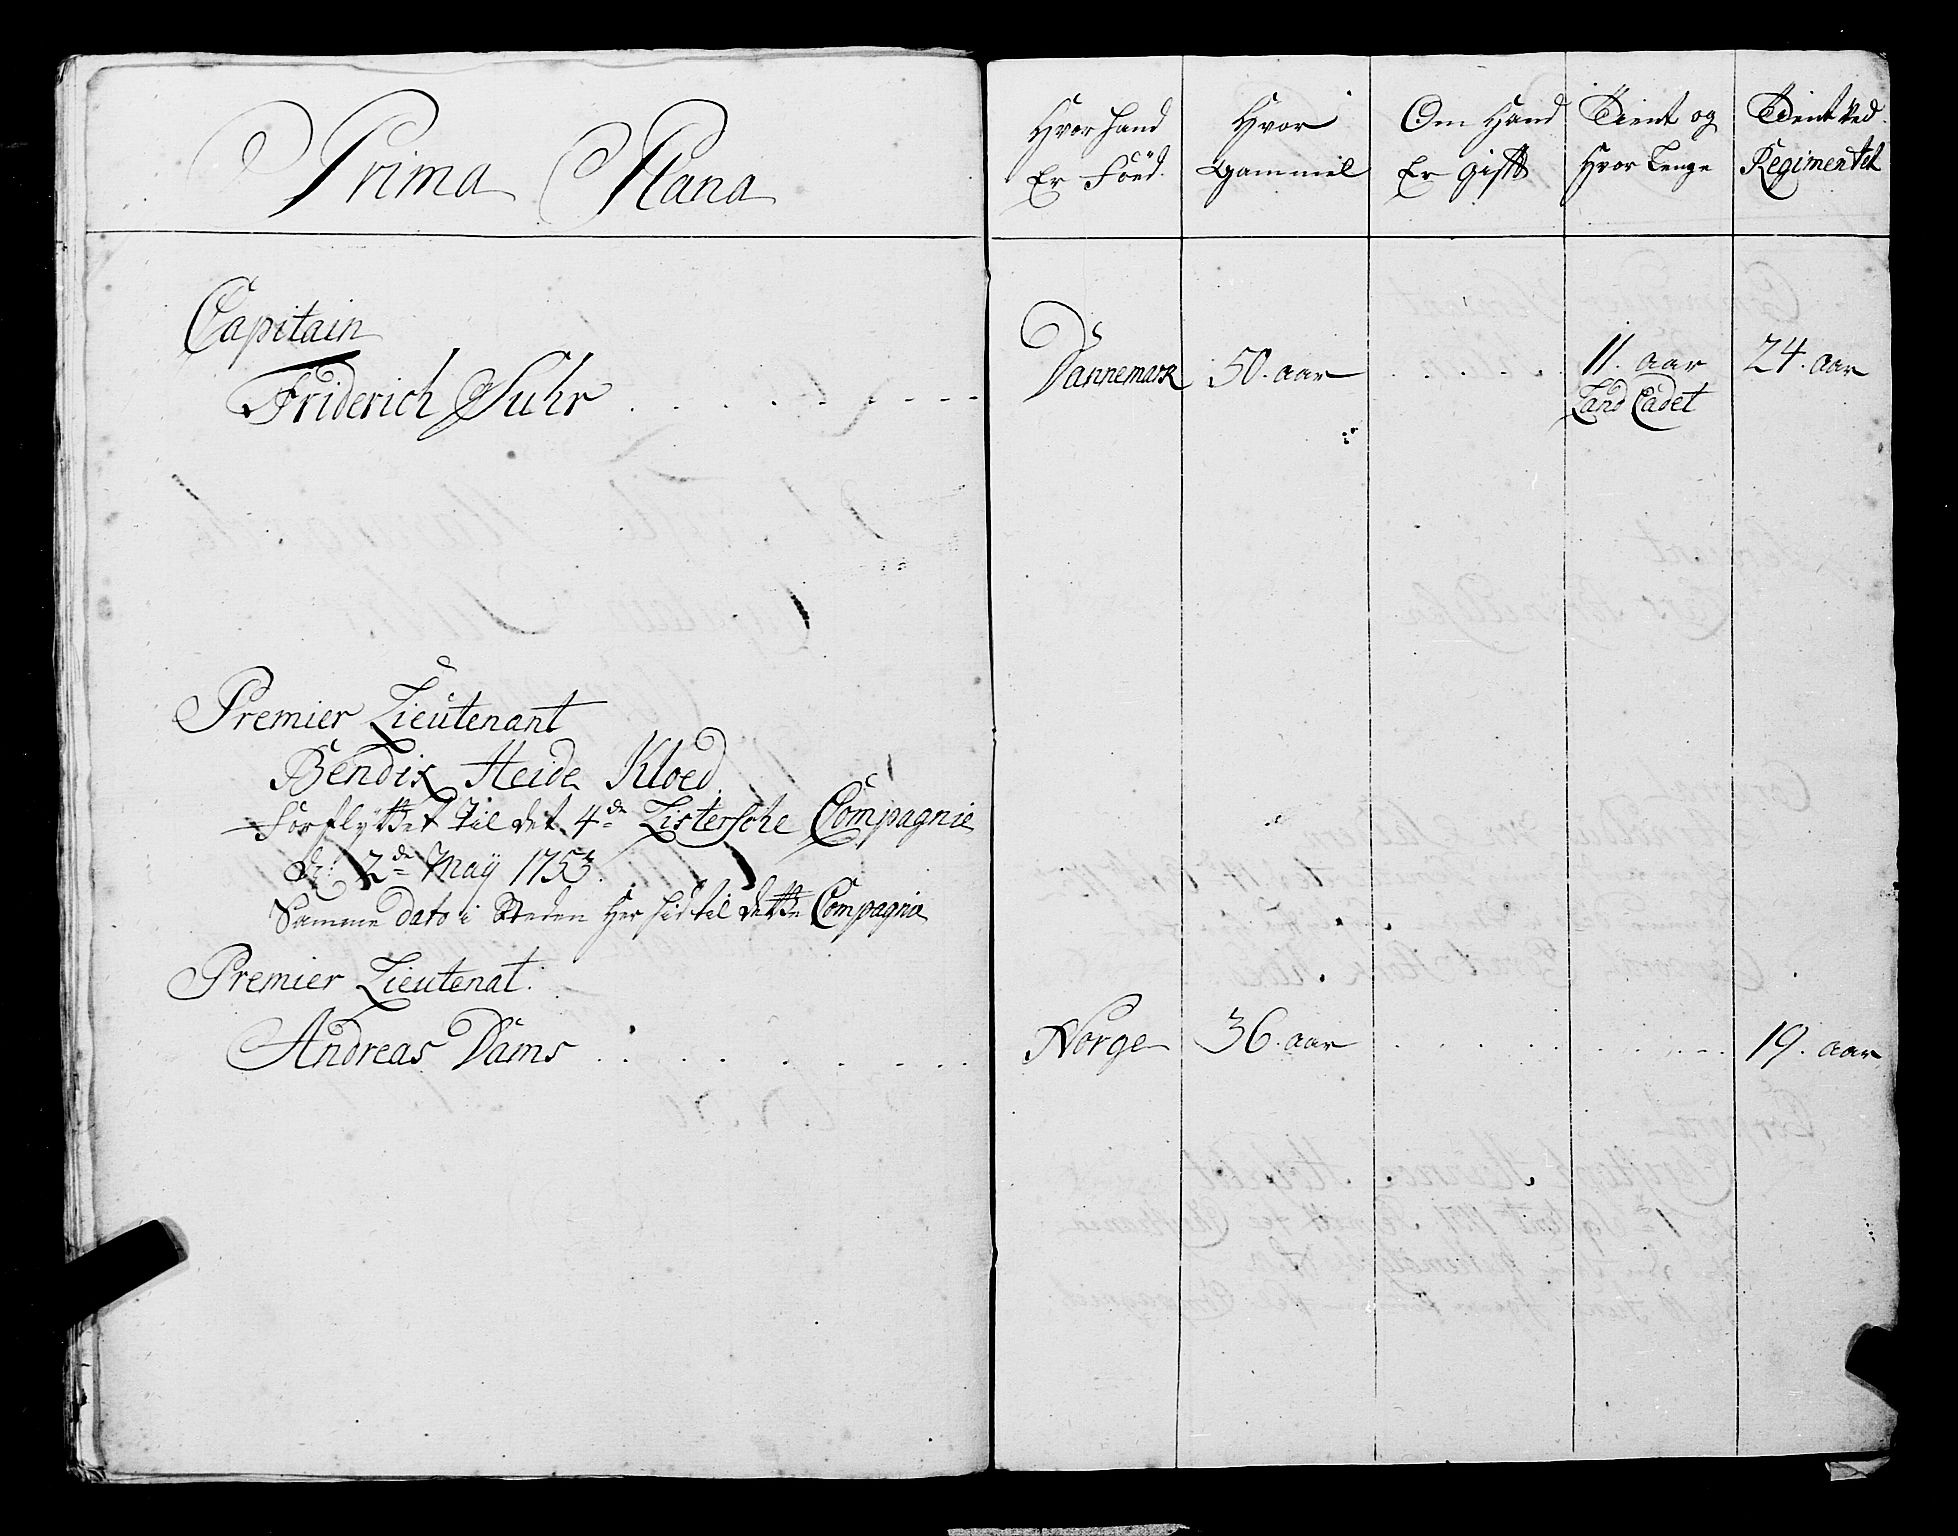 Prima Plana
Capitain
Friderich Suhr
Premier Lieutenant
Bendix Heide Kloed
Forflyttet til det 4de Listersche Compagnie
d: 2de Maÿ 1753.
Samme dato i Steden Her hid til dette Compagnie
Premier Lieutenat.
Andreas Dams
Hvor hand
Er Föed.
Hvor
Gammel
Om Hand
Er gift
Tient og
Hvor Lenge
Tient ved
Regimentet
Dannemark 50. aar 11. aar 24. aar
Land Cadet
Norge 36. aar 19. aar